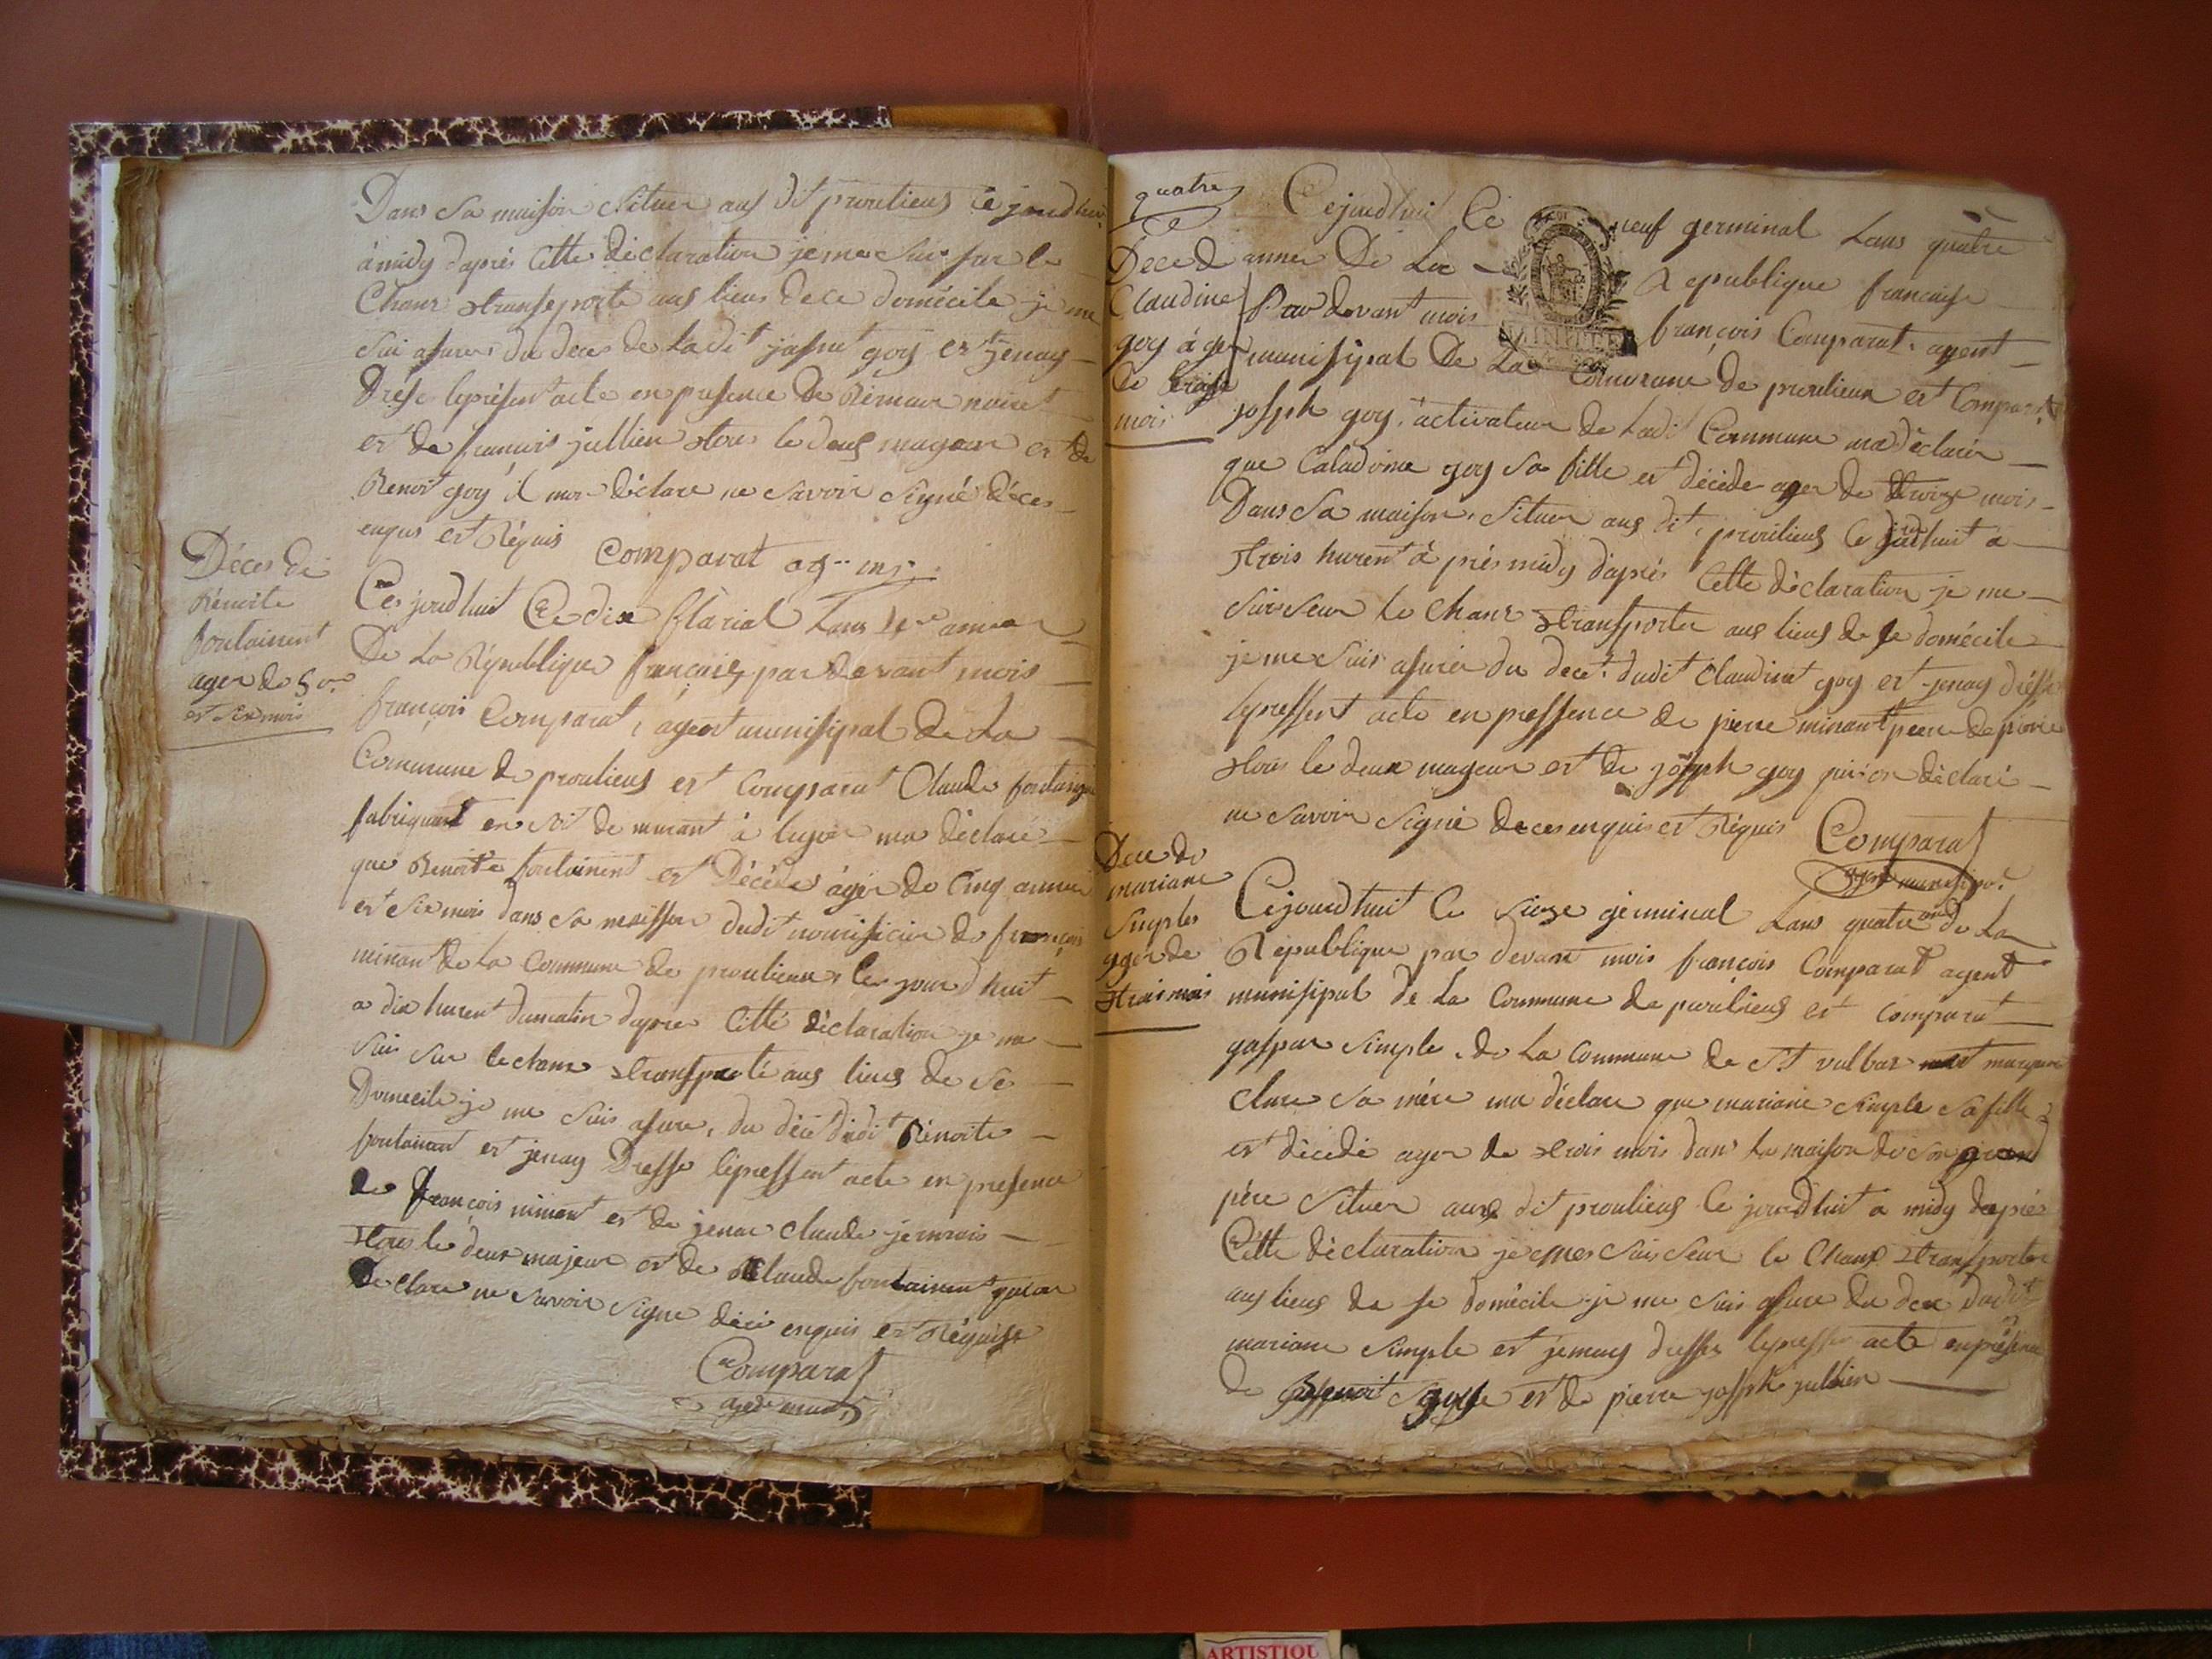 Dans sa maison situer aus dit proulieus ce jourdhui
à midy daprès Cette déclaration je me suis sur le
Chanz transeporte aus lieus de ce domécile je me
suis asurer du deces de la dit goy et jenay
Drese leprésent acte en presence de noiret
et de francois jullien tous le deus mageur et de
Benoit goy il mon déclare ne savoir signé déces
enqus et Réquis Comparat ag.. m..
Décès de
Bénoite
foutainent
ager de 5
et six mois
Ces jourdhuit Ce dix flarial Lans 4me annee
De La République française par devant mois
françois Comparat, agent munisipal De La
Commune de proulieus et Comparut Claude
fabriquant en soi de murant à luyon ma déclaré
que Benoite foutainent et Décédé âger de Cinq annee
et six mois dans sa maisson dudit nourisicier de françois
minant de La Commune de proulieux Ces jour dhuit
a dix hurent dumatin dapres Citté déclaration je me
suis sur le chanz transporté aus lieus de se
Domecile je me suis asure, du décé dudit Bénoite
foutainent et jenay Dresse lepressent acte en presence
de françois minant et de claude
tous le deux majeur et de Claude foutainent
Declare ne savoir signe décé enquis et Réquise
Comparat
agent
quatre
Deces de
Claudine
goy àger
de traise
mois
Cejourdhuit Ce neuf germinal Lans quatre
annee De La République française
Par devant mois françois Comparat. agent
munisipal De La Commune de proulieux et Comparut
joseph goy, activateur de Ladit Commune ma déclaré
que Caladoine goy sa fille et décédé ager de traize mois
Dans sa maison, situer aus dit, proulieus Ce jourdhuit à
trois hurent à près midy dapres Cette déclaration je me
suis seur le Chanz transporter aus lieus de se domécile
je me suis asurer du dece. dudit Claudinet goy et jenay dréssé
lepressent acte en pressence de pierre minant
tous le deux mageur et de joseph goy déclaré
ne savoir signé deces enquis et Réquis Comparat
agent munesipal
Dece de
mariane
simples
ager de
trois mois
Cejourdhuit Ce saize germinal Lans quatre de La
République par devant mois françois Comparat agent
munisipal de La Commune de proulieus et Comparut
gaspar simple, de La Commune de St vulbas
Clare sa mère ma déclare que mariane simple sa fille
et décédé ager de trois mois dans la maison de son grand
père situer aus dit proulieus Ce jourdhuit a midy dapré
Cette déclaration je me suis seur le Chanz transporter
aus lieus de se domécile je me suis asure du dece dudit
mariane simple et jenay dresser lepressent acte enprésence
de et de pierre joseph jullien
ARTISTIQU